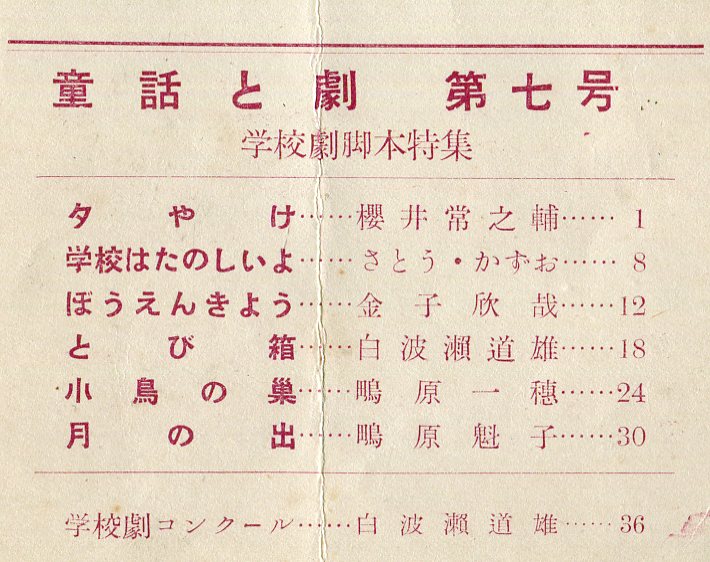 童話と劇 第七号
学校劇脚本特集
夕やけ……櫻井常之輔……1
学校はたのしいよ……さとう・かずお……8
ぼうえんきよう……金子欣哉……12
とび箱……白波瀬道雄……18
小鳥の巣……鴫原一穂……24
月の出……鴫原魁子……30
学校劇コンクール……白波瀬道雄……36